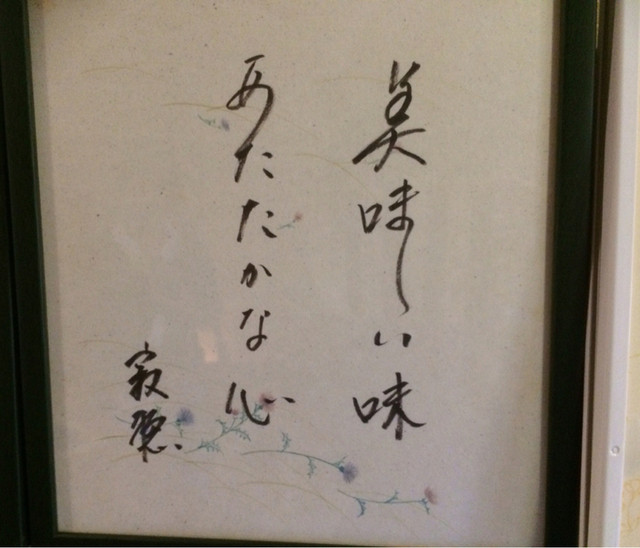 美味しい味
あたたかな心
寂聴